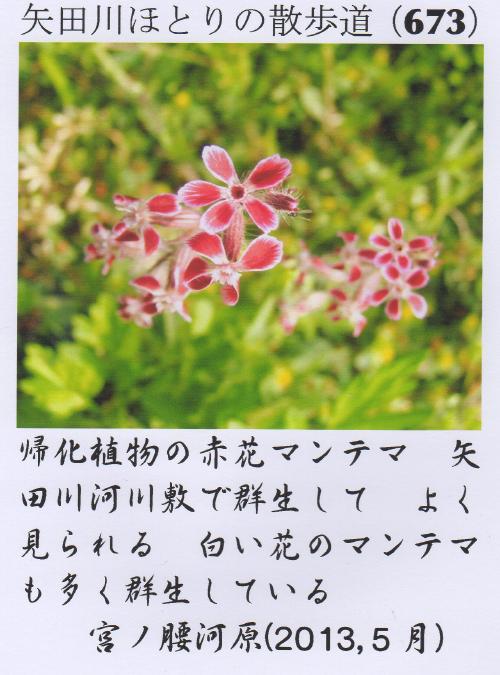 矢田川ほとりの散歩道（673）
帰化植物の赤花マンテマ　矢
田川河川敷で群生して　よく
見られる　白い花のマンテマ
も多く群生している
宮ノ腰河原(2013,5月)